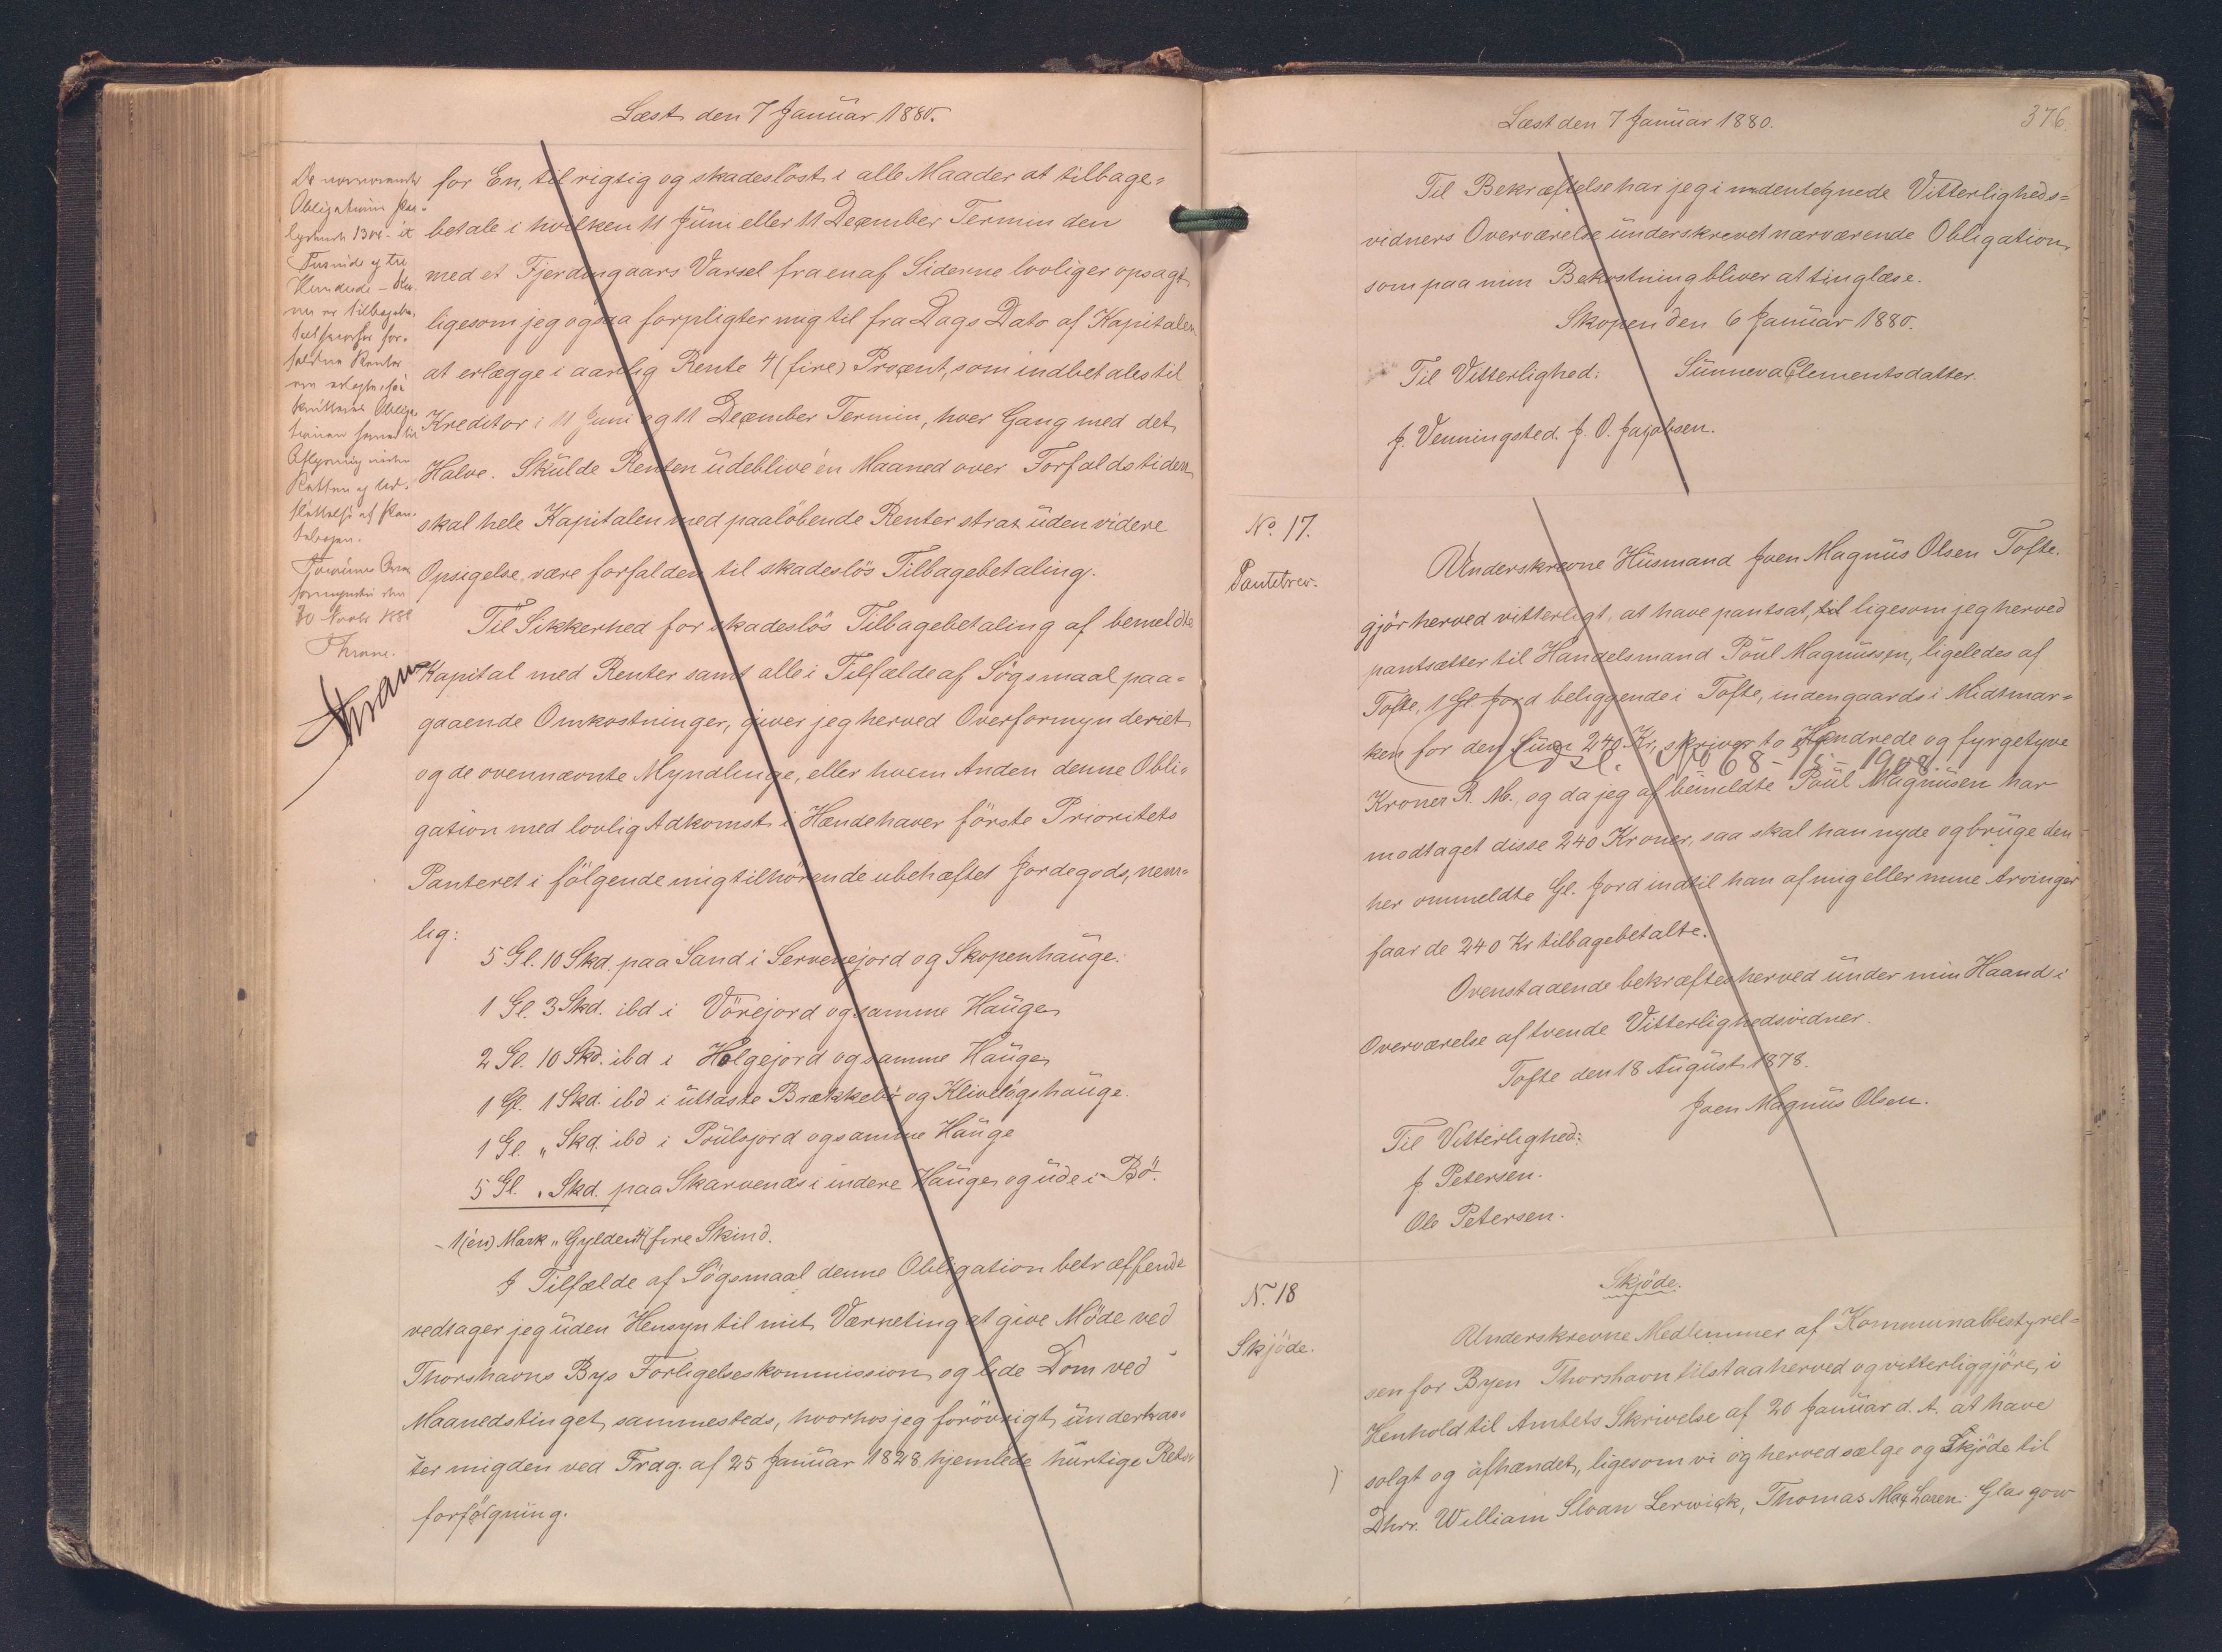 Læst den 7 Januar 1880.
for En, til rigtig og skadesløst i alle Maader at tilbage-
betale i hvilken 11 Juni eller 11 December Termin den
med et Fjerdingaars Varsel fra en af Siderne lovliger opsagt,
ligesom jeg ogsaa forpligter mig til fra Dags Dato af Kapitalen
at erlægge i aarlig Rente 4 (fire) Procent, som indbetales til
Kreditor i 11 Juni og 11 December Termin, hver Gang med det
Halve. Skulde Renten udeblive én Maaned over Forfaldstiden,
skal hele Kapitalen med paaløbende Renter strax uden videre
Opsigelse være forfalden til skadesløs Tilbagebetaling.
Til Sikkerhed for skadesløs Tilbagebetaling af bemeldte
Kapital med Renter samt alle i Tilfælde af Søgsmaal paa-
gaaende Omkostninger, giver jeg herved Overformynderiet
og de ovennævnte Myndlinge, eller hvem Anden denne Obli-
gation med lovlig Adkomst i Hænde haver første Prioritets
Panteret i følgende mig tilhørende ubehæftet Jordegods, nem-
lig:
5 Gl. 10 Skd. paa Sand i Servenejord og Skopenhauge.
1 Gl. 3 Skd. ibd i Vörejord og samme Hauge
2 Gl. 10 Skd. ibd i Hølgejord og samme Hauge
1 Gl. 1 Skd. ibd i uttaste Brækkebö og Klivelögshauge.
1 Gl. „ Skd. ibd i Poulsjord og samme Hauge
5 Gl. „ Skd. paa Skarvenæs i indere Hauge og ude i Bö.
1 (én) Mark „ Gylden 4 (fire Skind.
I Tilfælde af Søgsmaal denne Obligation betræffende
vedtager jeg uden Hensyn til mit Værneting at give Møde ved
Thorshavns Bys Forligelseskommission og lide Dom ved
Maanedstinget sammesteds, hvorhos jeg forøvrigt underkas-
ter mig den ved Frdg. af 25 Januar 1828 hjemlede hurtige Rets-
forfølgning.
De nærværende
Obligation paa-
lydende 1300 - et
Tusinde og tre
Hundrede - Kro-
ner er tilbagebe-
Renter
Obliga-
tionen
Aflysning
Retten og Ud-
slettelse af Pan-
tebogen.
Thrane.
Thrane
Læst den 7 Januar 1880.
376.
Til Bekræftelse har jeg i undertegnede Vitterligheds-
vidners Overværelse underskrevet nærværende Obligation,
som paa min Bekostning bliver at tinglæse.
Skopen den 6 Januar 1880.
Til Vitterlighed: Sunneva Clementsdatter.
J. Venningsted. J. O. Jacobsen.
No. 17.
Pantebrev.
Underskrevne Husmand Joen Magnus Olsen Tofte.
gjør herved vitterligt, at have pantsat, til ligesom jeg herved
pantsætter til Handelsmand Poul Magnussen, ligeledes af
Tofte, 1 Gl Jord beliggende i Tofte, indengaards i Midtmar-
ken for den Sum 240 Kr, skriver to Hundrede og fyrgetyve
No 68 - 1908.
Kroner R. M., og da jeg af bemeldte Poul Magnusen har
modtaget disse 240 Kroner, saa skal han nyde og bruge den
her ommeldte Gl. Jord indtil han af mig eller mine Arvinger
faar de 240 Kr tilbagebetalte.
Ovenstaaende bekræftes herved under min Haand i
Overværelse af tvende Vitterlighedsvidner.
Tofte den 18 August 1878.
Joen Magnus Olsen.
Til Vitterlighed:
J Petersen.
Ole Petersen.
N. 18
Skjøde.
Skjøde.
Underskrevne Medlemmer af Kommunalbestyrel-
sen for Byen Thorshavn tilstaa herved og vitterliggjøre, i
Henhold til Amtets Skrivelse af 20 Januar d. A. at have
solgt og afhændet, ligesom vi og herved sælge og Skjøde til
Dhrr. William Sloan Lerwick, Thomas Mac Laren Glasgow